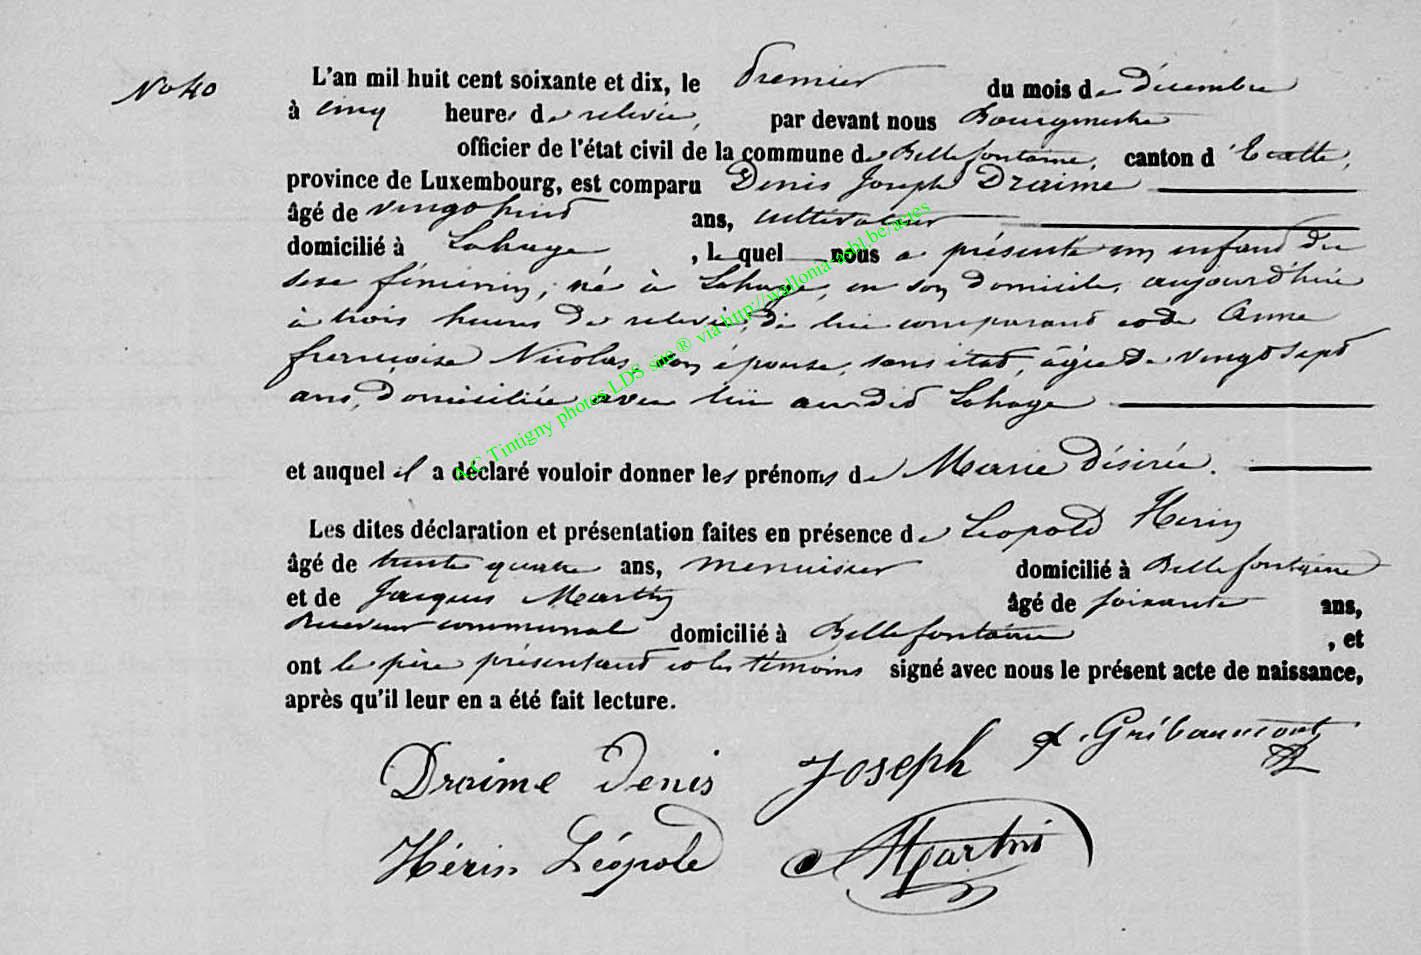 No 40
L'an mil huit cent soixante et dix, le premier du mois de décembre
à cinq heures de relevée, par devant nous Bourgmestre
officier de l'état civil de la commune de Bellefontaine, canton d'Etalle,
province de Luxembourg, est comparu Denis Joseph Draime
âgé de vingt huit ans, cultivateur
domicilié à Lahage, lequel nous a présenté un enfant du
sexe féminin, né à Lahage, en son domicile, aujourd'hui
à trois heures de relevée, de lui comparant et de Anne
françoise Nicolas, son épouse, sans état, âgée de vingt sept
ans, domiciliée avec lui audit Lahage
et auquel il a déclaré vouloir donner les prénoms de Marie Désirée.
Les dites déclaration et présentation faites en présence de Léopold Hérin
âgé de trente quatre ans, menuisier domicilié à Bellefontaine
et de Jacques Martin âgé de soixante ans,
Receveur communal domicilié à Bellefontaine, et
ont le père présentant et les témoins signé avec nous le présent acte de naissance,
après qu'il leur en a été fait lecture.
Draime Denis Joseph Gribaumont
Hérin Léopold Martin
A.C. Tintigny photos LDS site ® via http://wallonia-asbl.be/actes